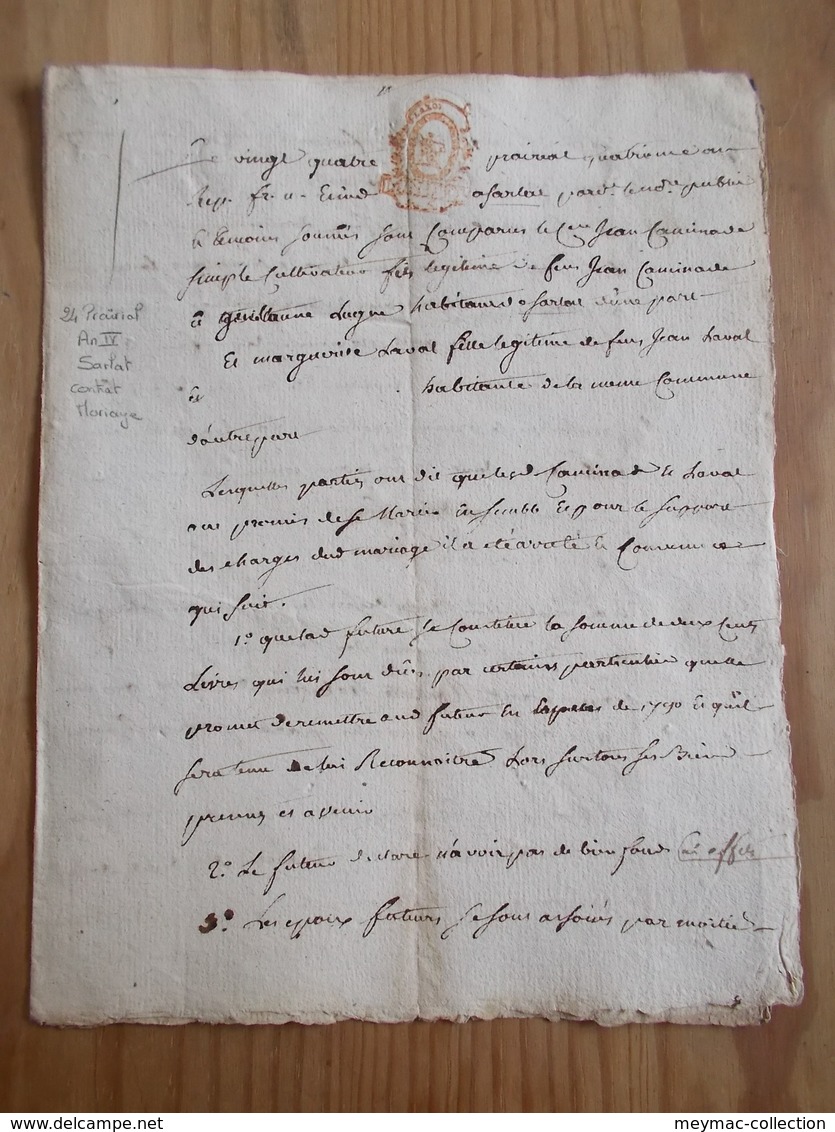 Le vingt quatre prairial quatrieme an
rep. fr. u. Eind a Sarlat pard.t le no.re public
& temoins sounés sont Comparus le Cen Jean Caminade
simple Cultivateur fils legitime de feus Jean Caminade
& Guillaume Lugne habitant de Sarlat d'une part
Et marguerite Laval fille legitime de feus Jean Laval
&
habitante de la meme Commune
d'autre part
24 Prairial
An IV
Sarlat
contrat
Mariage
Lesquelles parties ont dit que lesd. Caminade et Laval
ont promis de se Marier Ensemble Et pour le support
des charges dud mariage il a eté arreté le Convenu ce
qui suit.
1.º que lad future se Constitue la somme de deux Cents
Livres qui lui sont dûes par certains particuliers quelle
promet de remettre aud futur En Especes de 1790 Et qu'il
sera tenu de lui Reconnoitre Lors sur tous ses Biens
presents et avenir
2.º Le futur declare n'avoir pas de bien fonds ni effets
3.º Les epoux futurs se sont associés par moitié
meymac-collection